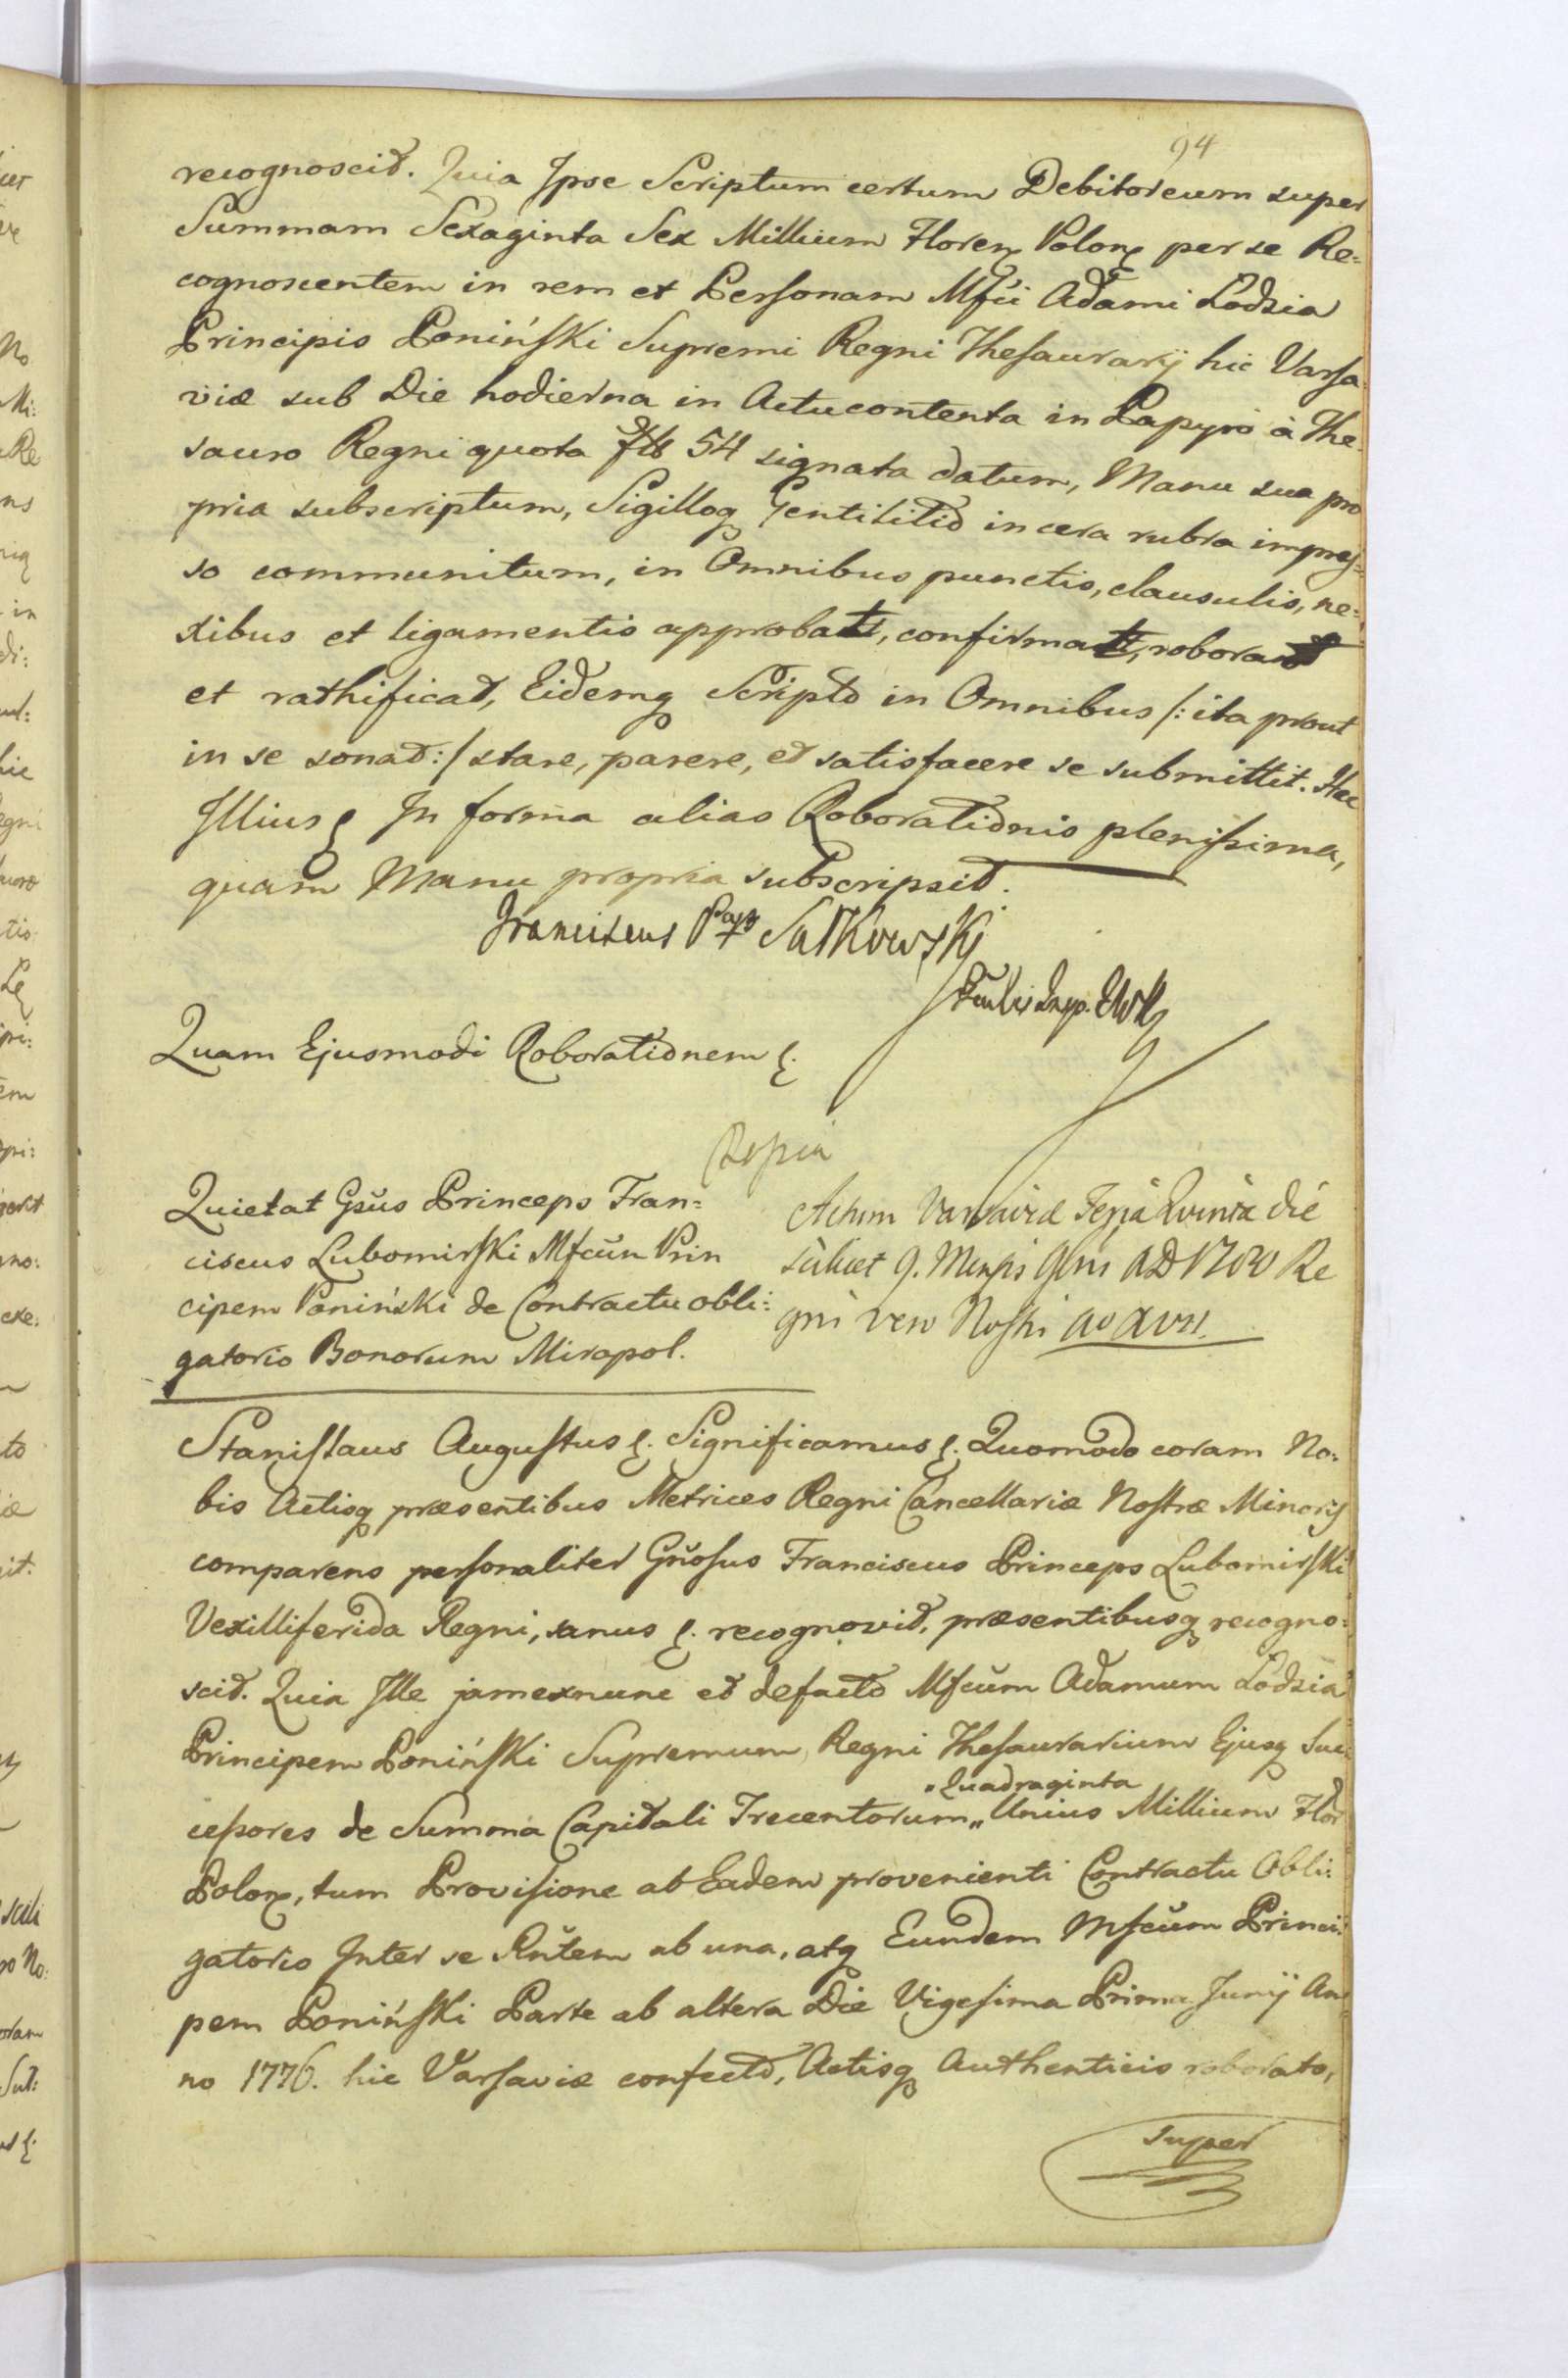 94
recognoscit. Quia Ipse Scriptum certum Debitoreum super
Summam Sexaginta Sex Millium Floren Polon per se Re=
cognoscentem in rem et Personam Mfci Adami Lodzia
Principis Poniński Supremi Regni Thesaurarij hic Varsa
viæ sub Die hodierna in Actu contenta in Papyro à The
sauro Regni quota 54 signata datum, Manu sua pro
pria subscriptum, Sigilloq Gentilitio in cera rubra impres=
so communitum, in Omnibus punctis, clausulis, ne=
xibus et ligamentis approbat, confirmat, roborat
et rathificat, Eidemq Scripto in Omnibus /: ita prout
in se sonat :/ stare, parere, et satisfacere se submittit. Hac
Illius In forma alias Roborationis plenissima,
quam Manu propria subscripsit.
Franciscus Sulkowski
Quam Ejusmodi Roborationem
Copia
Quietat Gsus Princeps Fran=
ciscus Lubomirski Mfcum Prin
cipem Poniński de Contractu obli=
gatorio Bonorum Miropol.
Actum Varsaviæ Feria Quinta die
scilicet 9. Mensis 9bris AD 1780 Re
gni vero Nostri ao XVII.
Stanislaus Augustus Significamus Quomodo coram No=
bis Actisq præsentibus Metrices Regni Cancellariæ Nostræ Minoris
comparens personaliter Gnosus Franciscus Princeps Lubomirski
Vexilliferida Regni, sanus recognovit, præsentibusq recogno=
scit. Quia Ille jam ex nunc et defacto Mfcum Adamum Lodzia
Principem Poniński Supremum Regni Thesaurarium Ejusq Suc=
Quadraginta
cessores de Summa Capitali Trecentorum „ Unius Millium Flor
Polon, tum Provisione ab Eadem provenienti Contractu Obli=
gatorio Inter se Rntem ab una, atq Eundem Mfcum Princi=
pem Poniński Parte ab altera Die Vigesima Prima Junij An
no 1776. hic Varsaviæ confecto, Actisq Authenticis roborato,
super